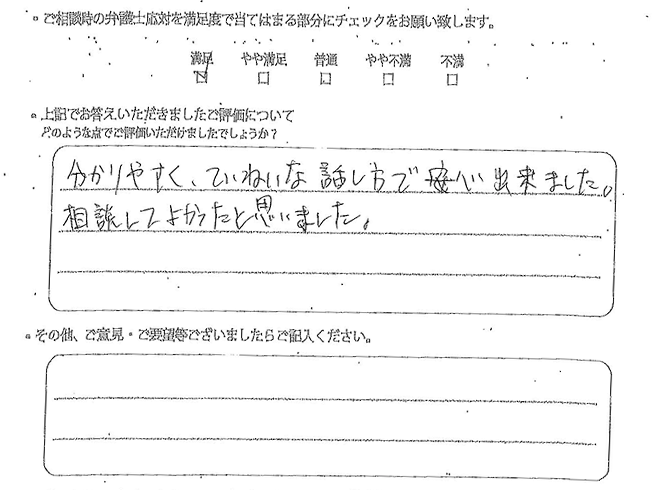 。ご相談時の弁護士応対を満足度で当てはまる部分にチェックをお願い致します。
満足 やや満足 普通 やや不満 不満
。上記でお答えいただきましたご評価について
どのような点でご評価いただけましたでしょうか？
分かりやすく、ていねいな話し方で安心出来ました。
相談してよかったと思いました。
。その他、ご意見・ご要望等ございましたらご記入ください。